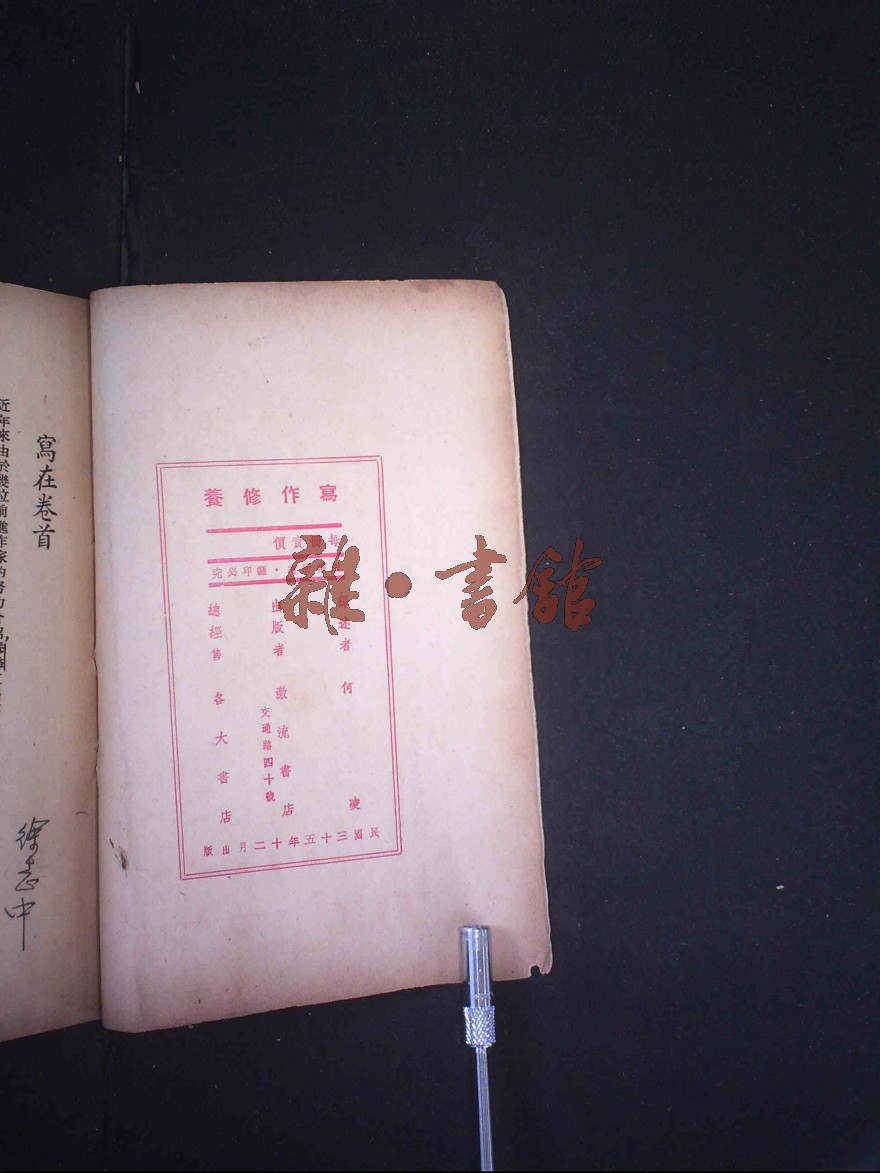 寫作修養
實價
翻印必究
述者 何 凌
出版者 激流書店
交通路四十號
總經售 各大書店
民國三十五年十二月出版
寫在卷首
近年來由於幾位前進作家的努力介紹
徐志中
雜·書館